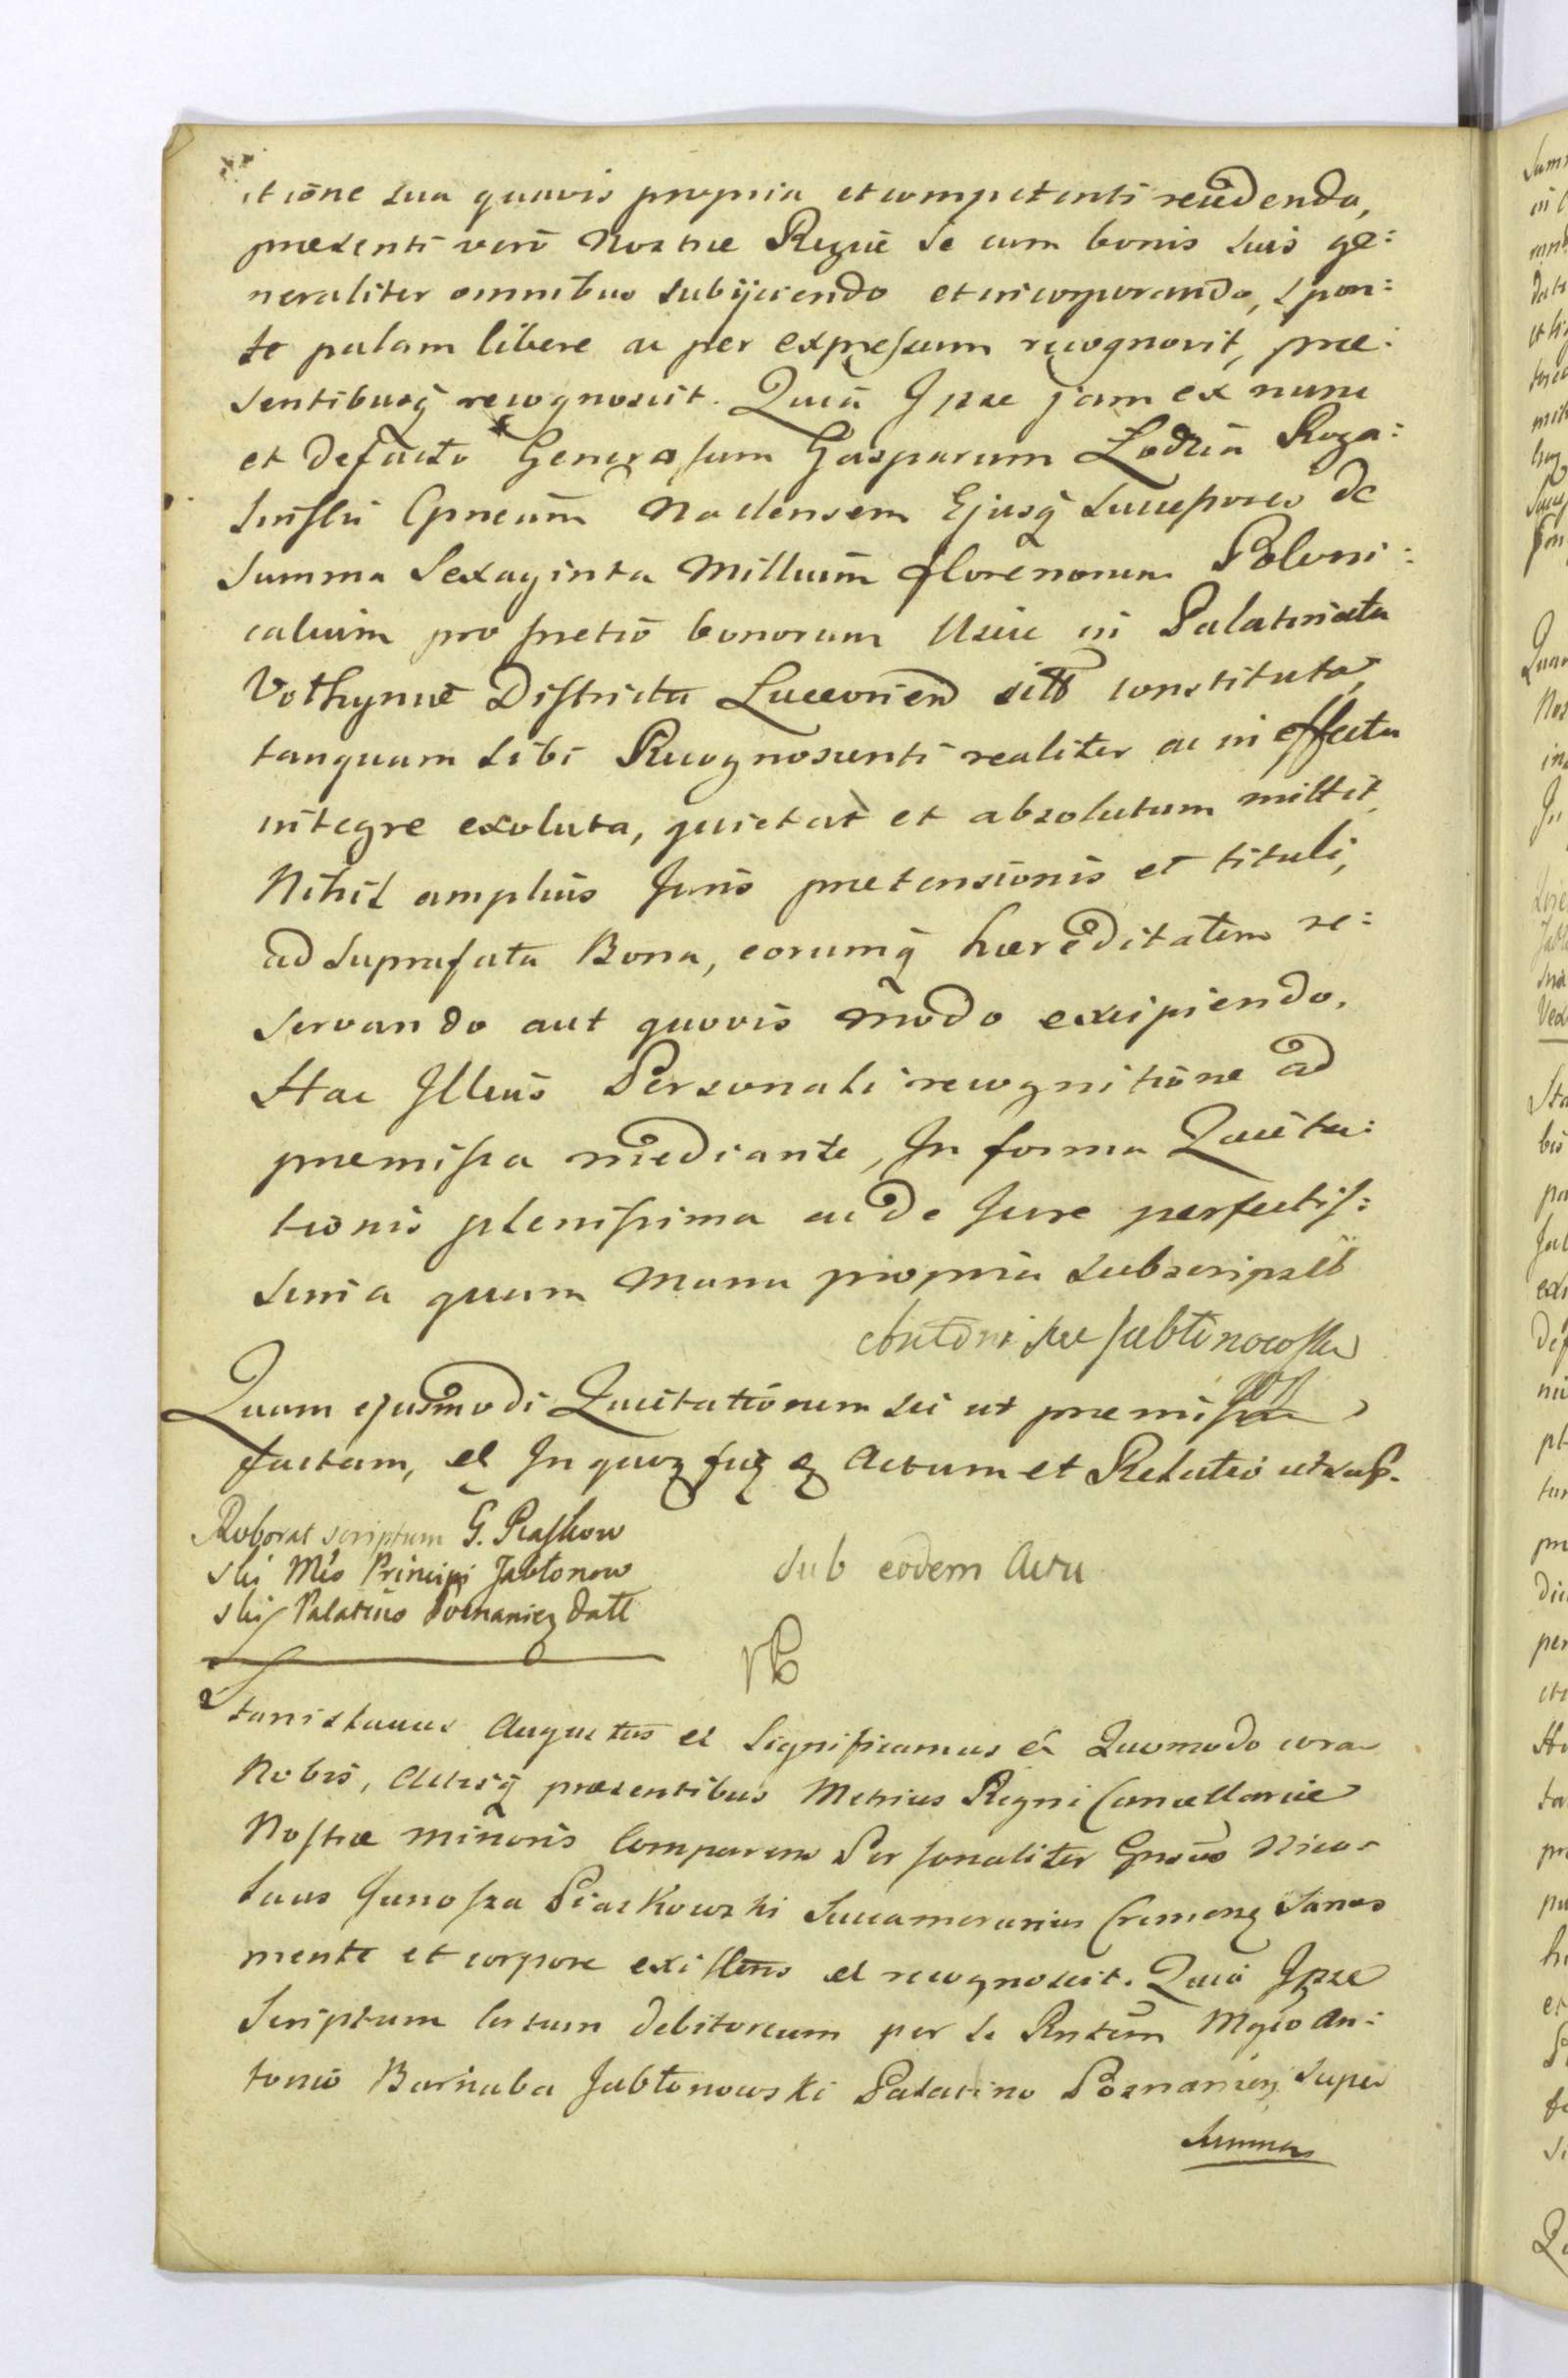 itiōne sua quavis propria et competenti recedenda,
præsenti vero Nostræ Regiæ se cum bonis suis ge:
neraliter omnibus subijciendo et incorporando, spon:
te palam libere ac per expressum recognovit, præ:
sentibusq̃ recognoscit. Quia Ipse jam ex nunc
et defacto Generosum Gasparum Łodzia Roga:
linski Capneum Naclensem Ejusq̃ Successores de
summa Sexaginta Millium florenorum Poloni:
calium pro pretio bonorum Uscie in Palatinatu
Volhyniæ Districtu Luceorien sitt constituta,
tanquam sibi Recognoscenti realiter ac in effectu
integre exoluta, quietat et absolutum mittit,
Nihil amplius Juris prætensionis et tituli,
ad suprafata Bona, eorumq̃ hæreditatem re:
servando aut quovis modo excipiendo.
Hac Illius Personali recognitiōne ad
præmissa mediante, In forma Quieta:
tionis plenissima ac de Jure perfectis:
sima quam Manu propria subscripsit
Antoni Xże Jabłonowski
Quam ejusmodi Quietationem sic ut præmissum
factam, et In quoꝝ fiꝝ ꝝ Actum et Relatio ut sup.
Roborat scriptum G. Piaskow
ski Mco Principi Jabłonow
ski Palatino Posnanieꝝ datt
Sub eodem Actu
Stanislaus Augustus et Significamus et Quomodo cora
Nobis, Actisq̃ præsentibus Metrices Regni Cancellariæ
Nostræ minoris Comparens Personaliter Gnsus Nico-
laus Junosza Piaskowski Succamerarius Cremeneꝝ Sanus
mente et corpore existens et recognoscit. Quia Ipse
Scriptum certum debitorium per se Rntem Mgco An:
tonio Barnaba Jabłonowski Palatino Posnanieꝝ super
summa